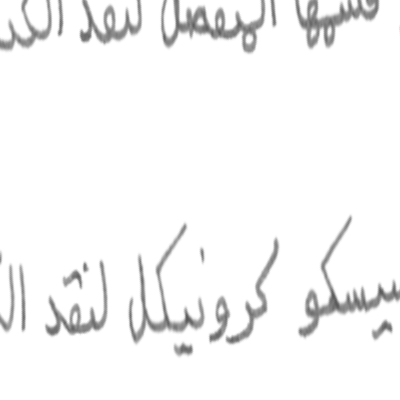 قسمها المنفصل لنقد الكت
سيسكو كرونيكل لنقد ال